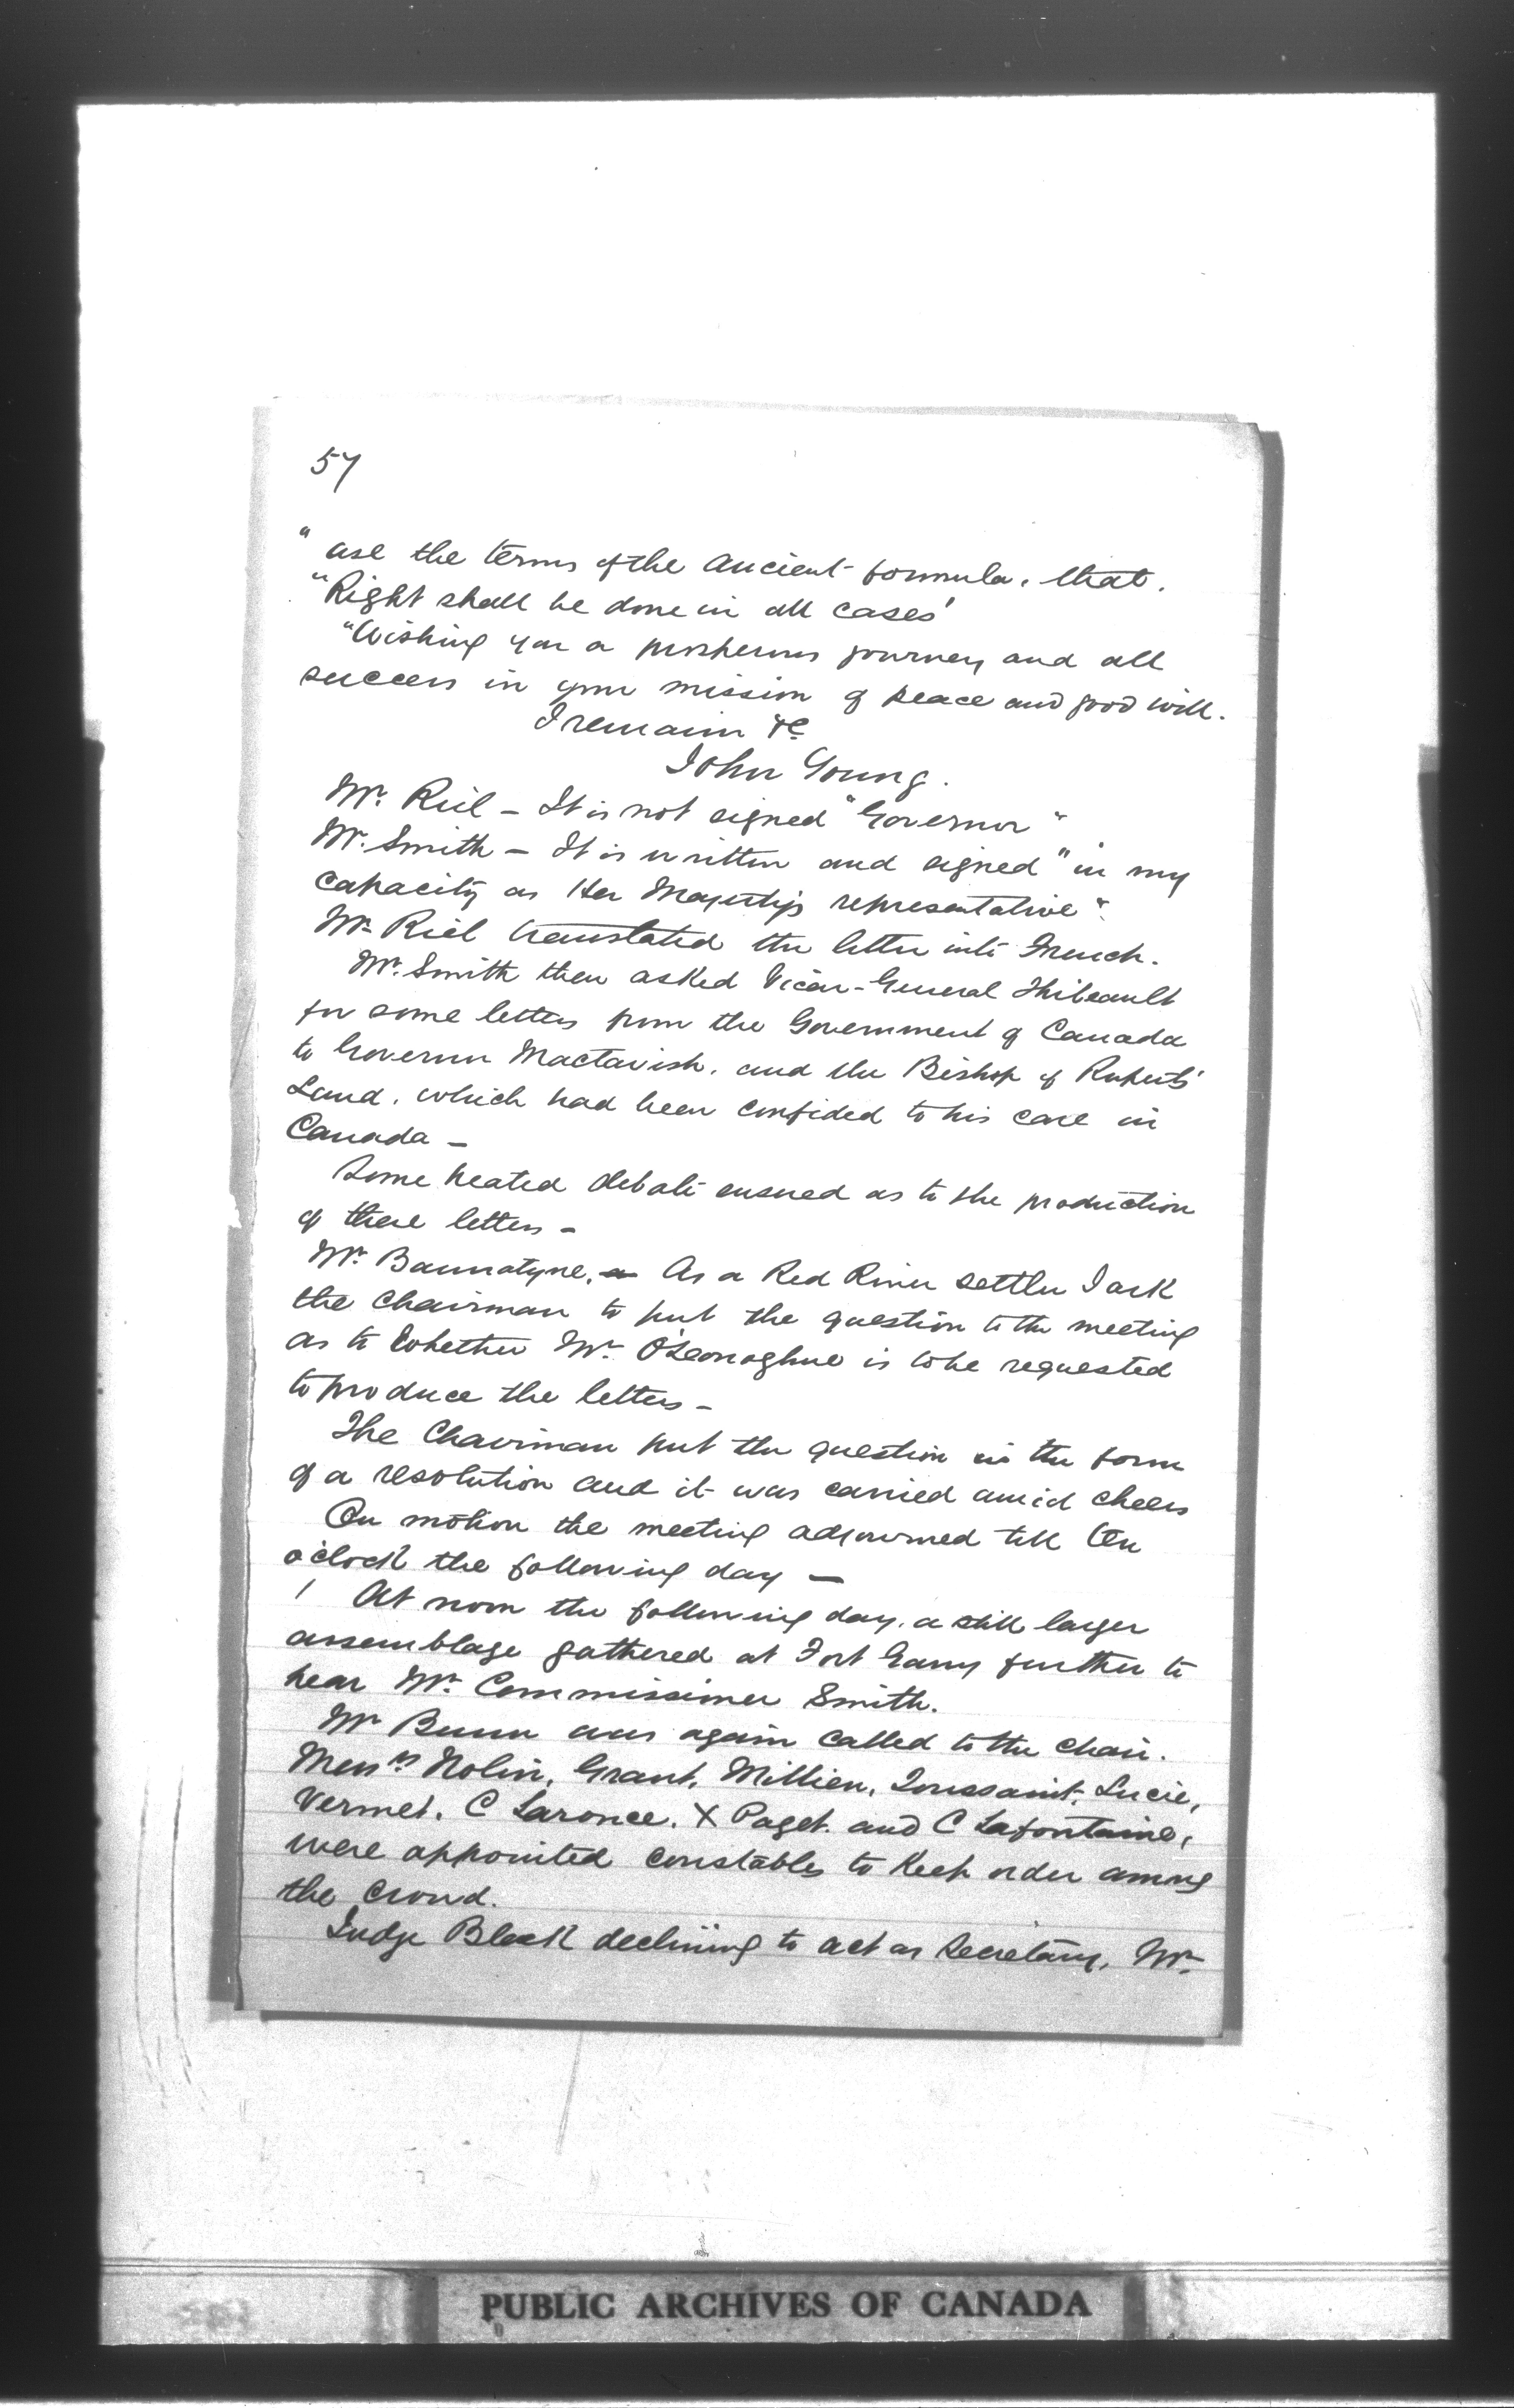 57
" use the terms of the ancient formula, that.
"Right shall be done in all cases'
"Wishing you a prosperous journey and all
success in your mission of peace and good will.
I remain &c
John Young.
Mr. Riel – It is not signed "Governor"
Mr. Smith – It is written and signed "in my
capacity as Her Majesty's representative".
Mr. Riel translated the letter into French.
Mr. Smith then asked Vicar-General Thibeault
for some letters from the Government of Canada
to Governor Mactavish, and the Bishop of Ruperts'
Land, which had been confided to his care in
Canada –
Some heated debate ensued as to the production
of these letters –
Mr. Bannatyne, a As a Red River settler I ask
the chairman to put the question to the meeting
as to whether Mr. O'Leonoghue is to be requested
to produce the letters –
The Chairman put the question in the form
of a resolution and it was carried amid cheers
On motion the meeting adjourned till ten
o'clock the following day –
/ At noon the following day, a still larger
assemblage gathered at Fort Garry further to
hear Mr. Commissioner Smith.
Mr Bunn was again called to the chair.
Messrs Nolin, Grant, Millien, Toussaint, Lucie,
Vermet, C Laronce, X Paget, and C Lafontaine,
were appointed constables to keep order among
the crowd.
Judge Black declining to act as Secretary, Mr.
PUBLIC ARCHIVES OF CANADA